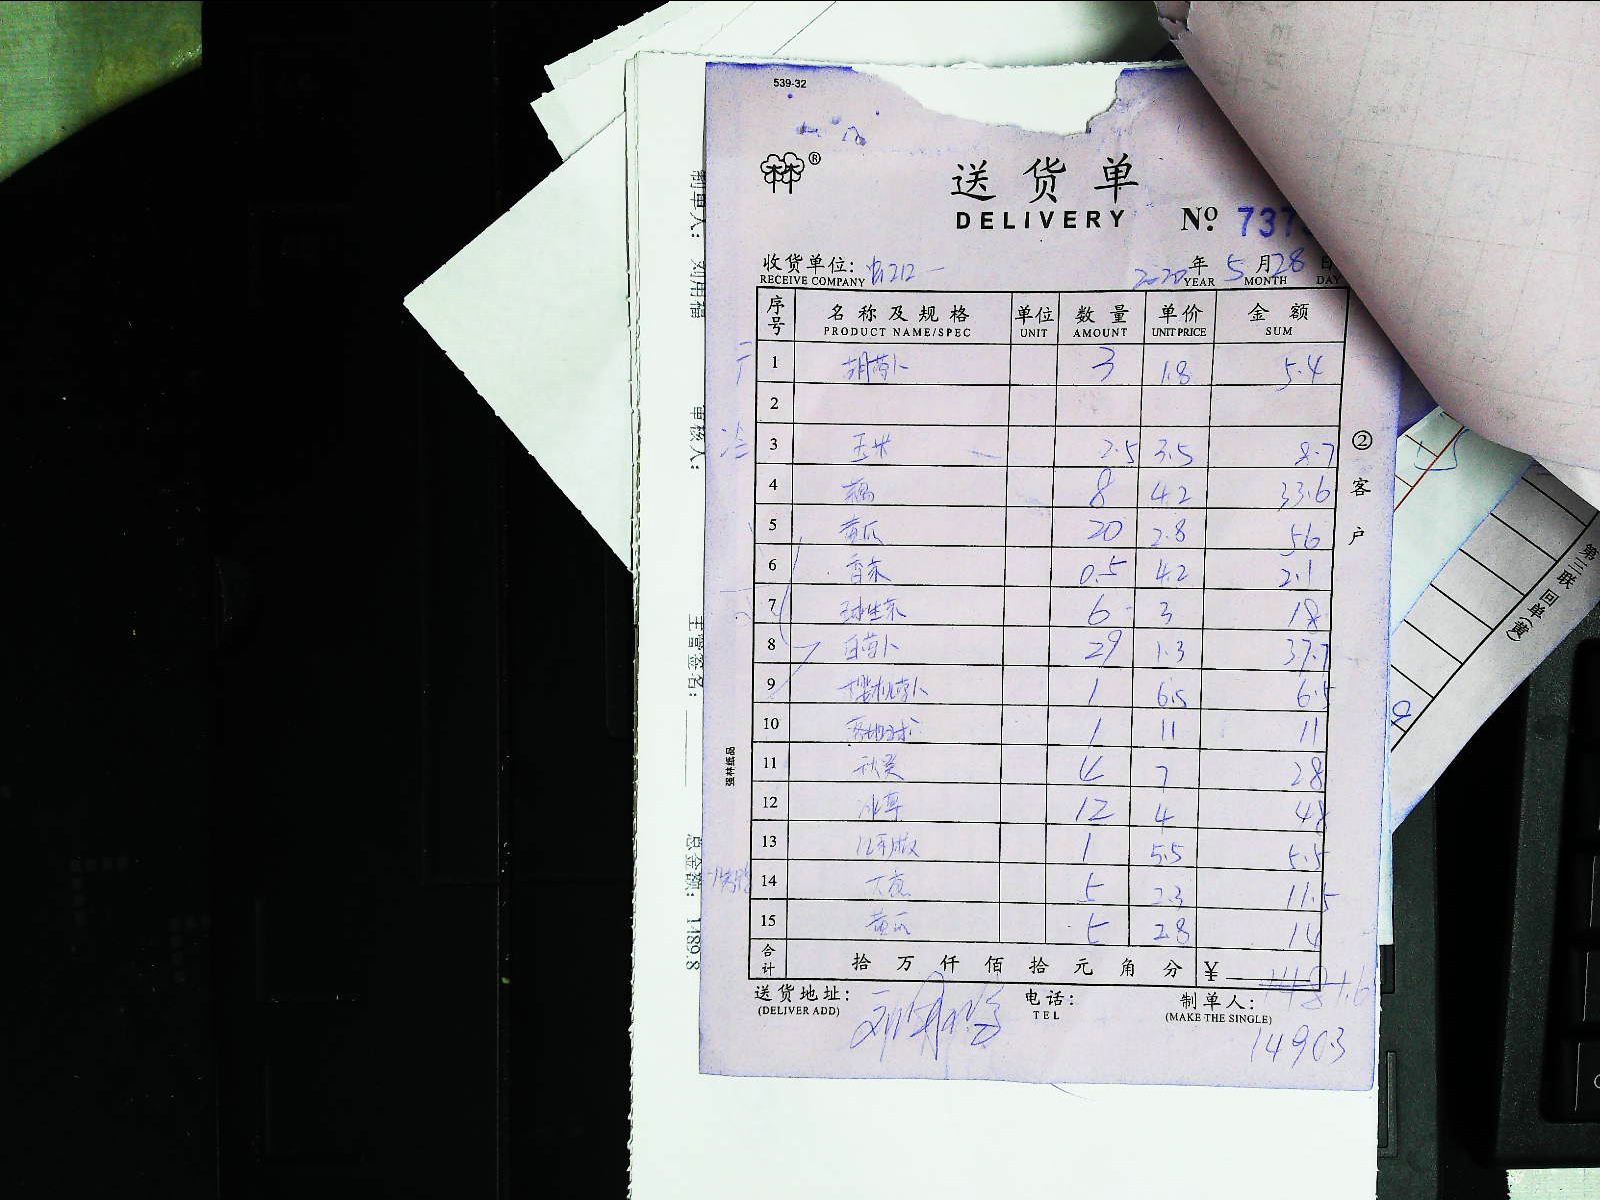 539-32
®
送货单
DELIVERY № 737
收货单位: 年 5 月 28 日
RECEIVE COMPANY YEAR MONTH DAY
序号 名称及规格 单位 数量 单价 金额
PRODUCT NAME/SPEC UNIT AMOUNT UNIT PRICE SUM
1 胡萝卜 3 1.8 5.4
2
3 玉米 2.5 3.5 8.7
4 藕 8 4.2 33.6
5 黄瓜 20 2.8 56
6 香菜 0.5 4.2 2.1
7 球生菜 6 3 18
8 白萝卜 29 1.3 37.7
9 樱桃萝卜 1 6.5 6.5
10 1 11 11
11 秋葵 4 7 28
12 冰草 12 4 48
13 1 5.5 5.5
14 大葱 5 2.3 11.5
15 黄瓜 5 2.8 14
合计 拾万仟佰拾元角分 ¥ 1481.6
送货地址: 电话: 制单人:
(DELIVER ADD) TEL (MAKE THE SINGLE)
1490.3
②客户
强林纸品
制单人: 刘用福
审核人:
主管签名:
总金额: 1489.8
第三联 回单(黄)